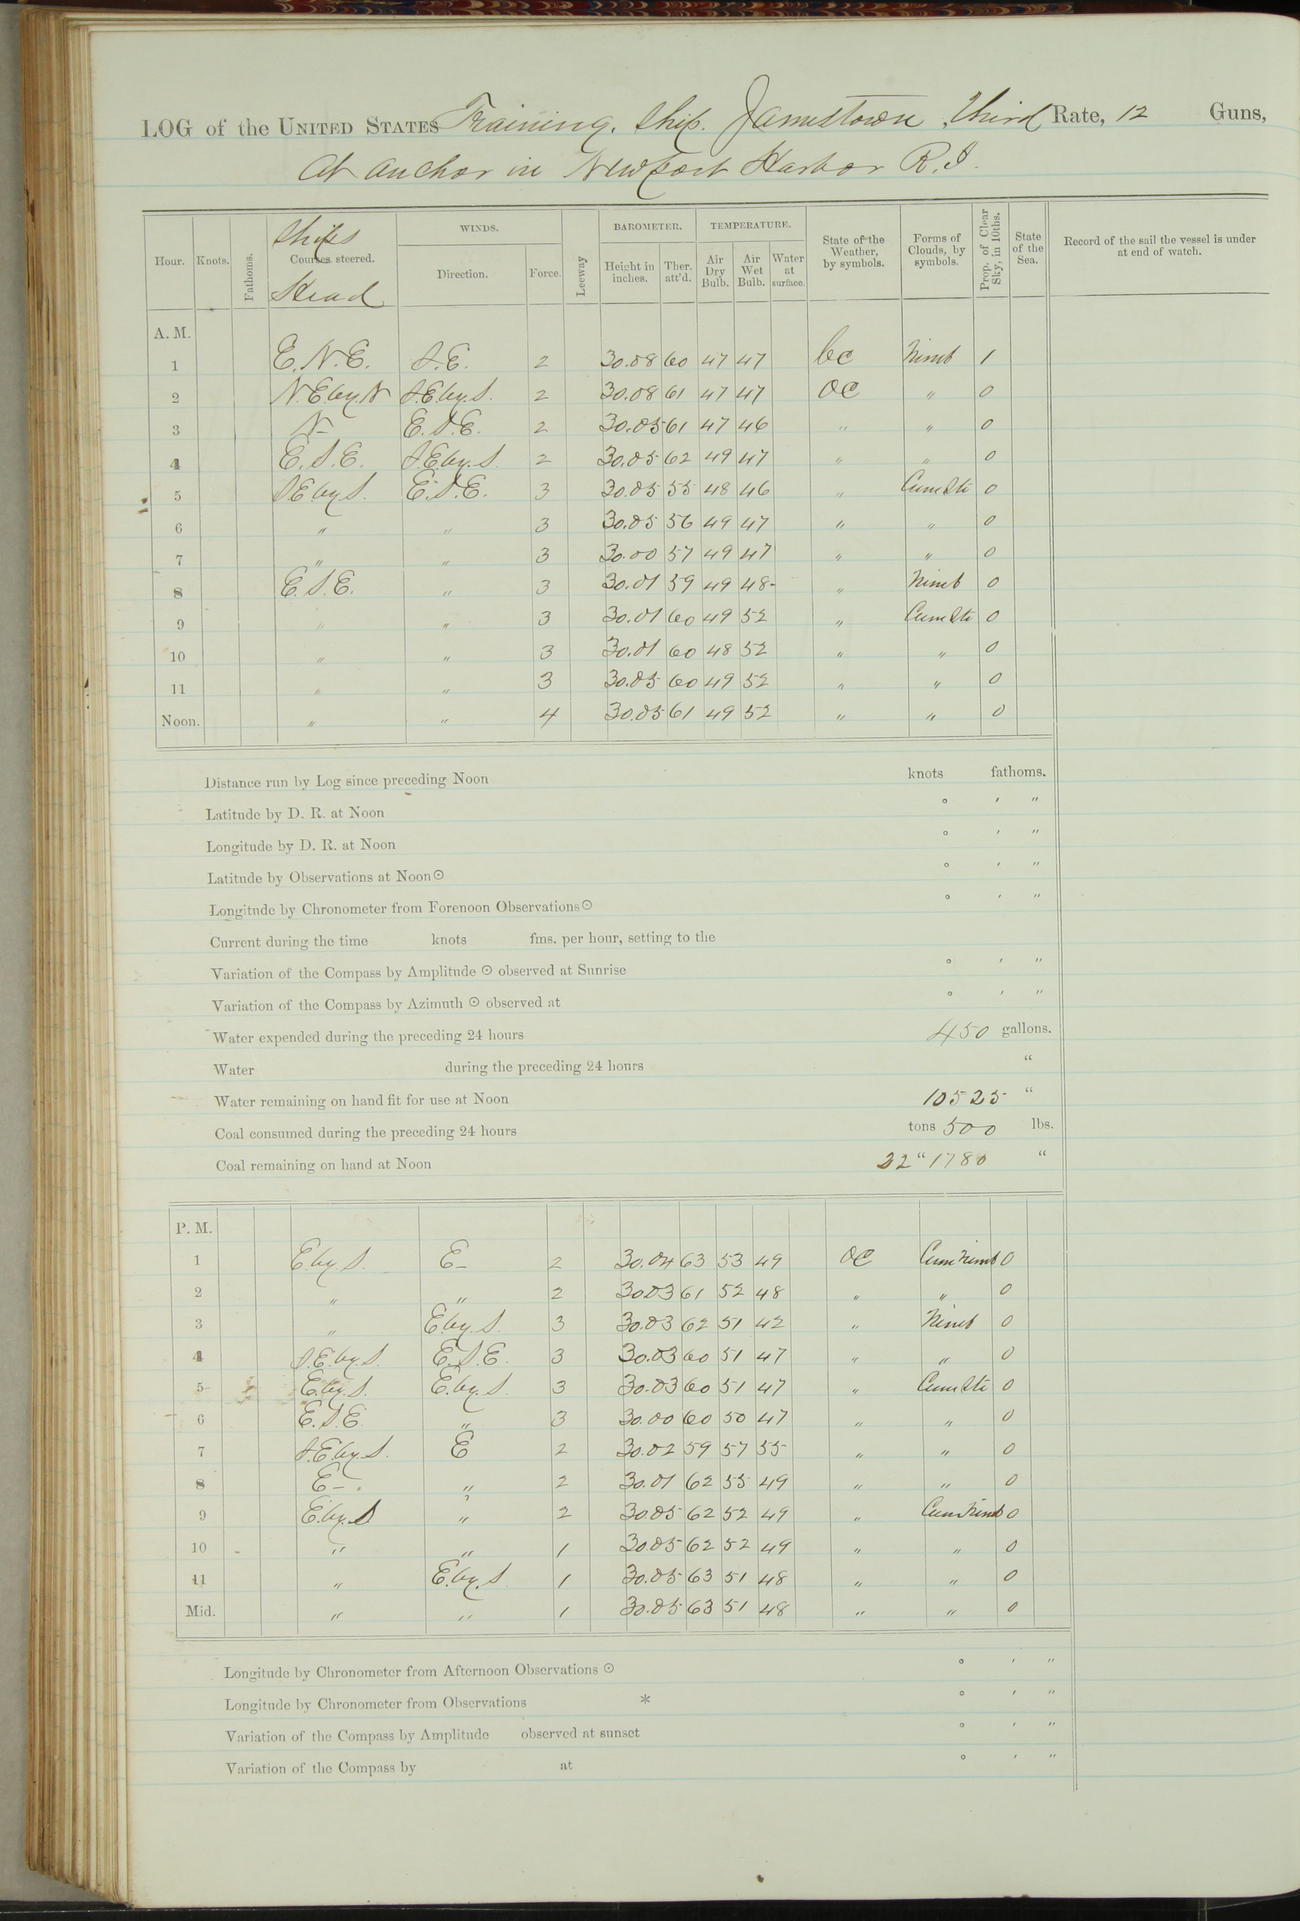 LOG of the UNITED STATES Training Ship Jamestown, Third Rate, 12 Guns,
At anchor in Newport Harbor R.I.
Hour. Knots. Fathoms. Ships Courses steered. Head WINDS. Direction. Force. Leeway BAROMETER. Height in inches. Ther. att'd. TEMPERATURE. Air Dry Bulb. Air Wet Bulb. Water at surface. State of the Weather, by symbols. Forms of Clouds, by symbols. Prop. of Clear Sky, in 10ths. State of the Sea. Record of the sail the vessel is under at end of watch.
A. M.
1 E.N.E. S.E. 2 30.08 60 47 47 bc Nimb 1
2 N.E.by.N S.E.by.S. 2 30.08 61 47 47 OC " 0
3 N- E.S.E. 2 30.05 61 47 46 " " 0
4 E.S.E. S.E.by.S. 2 30.05 62 49 47 " " 0
5 S.E.by.S. E.S.E. 3 30.05 55 48 46 " Cum Str 0
6 " " 3 30.05 56 49 47 " " 0
7 " " 3 30.00 57 49 47 " " 0
8 E.S.E. " 3 30.01 59 49 48- " Nimb 0
9 " " 3 30.01 60 49 52 " Cum Str 0
10 " " 3 30.01 60 48 52 " " 0
11 " " 3 30.05 60 49 52 " " 0
Noon. " " 4 30.05 61 49 52 " " 0
Distance run by Log since preceding Noon knots fathoms.
Latitude by D. R. at Noon ° ′ ″
Longitude by D. R. at Noon ° ′ ″
Latitude by Observations at Noon ☉ ° ′ ″
Longitude by Chronometer from Forenoon Observations ☉ ° ′ ″
Current during the time knots fms. per hour, setting to the
Variation of the Compass by Amplitude ☉ observed at Sunrise ° ′ ″
Variation of the Compass by Azimuth ☉ observed at ° ′ ″
Water expended during the preceding 24 hours 450 gallons.
Water during the preceding 24 hours “
Water remaining on hand fit for use at Noon 10525 “
Coal consumed during the preceding 24 hours tons 500 lbs.
Coal remaining on hand at Noon 22 " 1780 “
P. M.
1 E.by.S. E- 2 30.04 63 53 49 OC Cum Nimb 0
2 " " 2 30.03 61 52 48 " " 0
3 " E.by.S. 3 30.03 62 51 42 " Nimb 0
4 S.E.by.S. E.S.E. 3 30.03 60 51 47 " " 0
5 E.by.S. E.by.S. 3 30.03 60 51 47 " Cum Str 0
6 E.S.E. " 3 30.00 60 50 47 " " 0
7 S.E.by.S. E 2 30.02 59 57 55 " " 0
8 E- " 2 30.01 62 55 49 " " 0
9 E.by.S " 2 30.05 62 52 49 " Cum Nimb 0
10 " " 1 30.05 62 52 49 " " 0
11 " E.by.S 1 30.05 63 51 48 " " 0
Mid. " " 1 30.05 63 51 48 " " 0
Longitude by Chronometer from Afternoon Observations ☉ ° ′ ″
Longitude by Chronometer from Observations * ° ′ ″
Variation of the Compass by Amplitude observed at sunset ° ′ ″
Variation of the Compass by at ° ′ ″